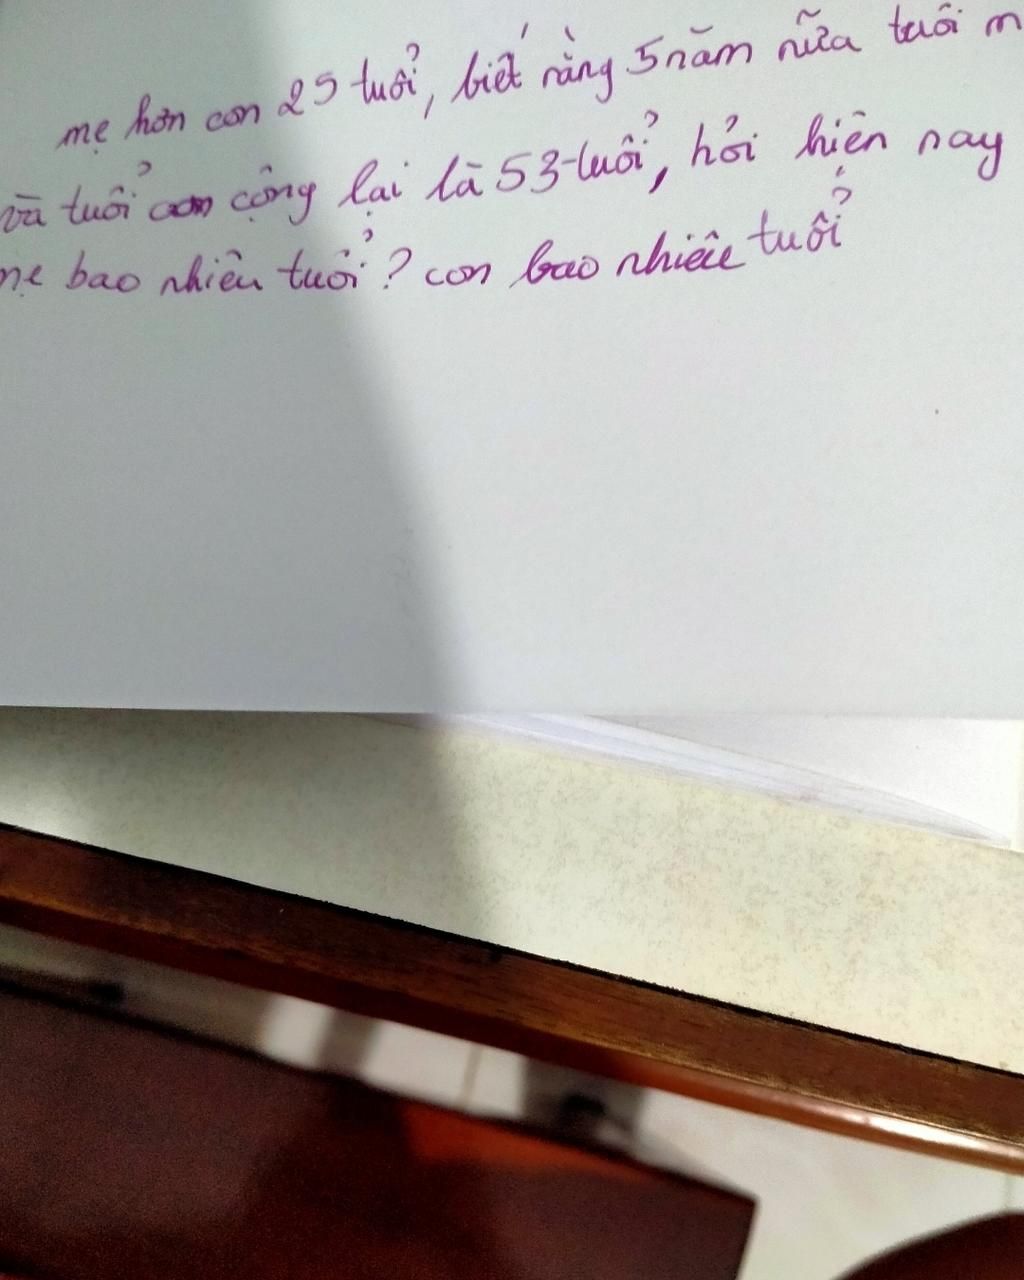 mẹ hơn con 25 tuổi, biết rằng 5 năm nữa tuổi m
và tuổi con cộng lại là 53 tuổi, hỏi hiện nay
mẹ bao nhiêu tuổi? con bao nhiêu tuổi